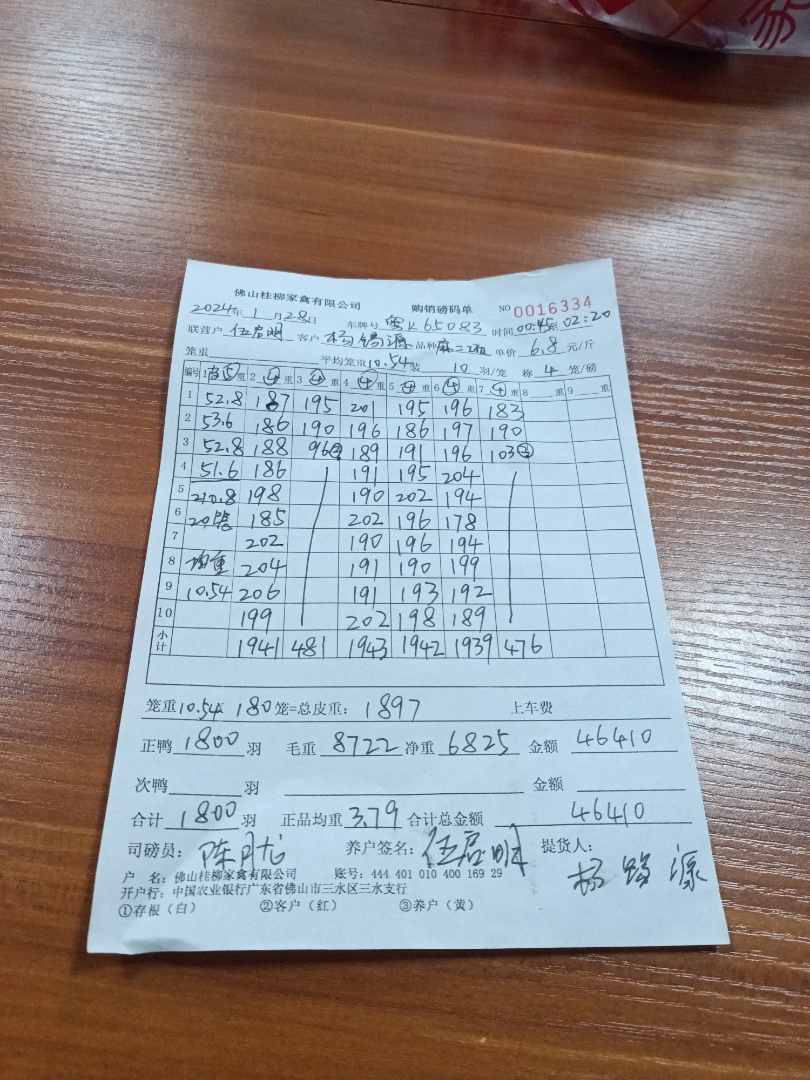 佛山桂柳家禽有限公司 购销磅码单 NO 0016334
2024年1月28日 车牌号 粤K65083 时间00:45至02:20
联营户 伍启明 客户 杨锡源 品种 麻二 单价 6.8 元/斤
笼重 平均笼重10.54装 10 羽/笼 称 4 笼/磅
编号 1 ⑤ 重 2 ④ 重 3 ④ 重 4 ④ 重 5 ④ 重 6 ④ 重 7 ④ 重 8 重 9 重
1 52.8 187 195 201 195 196 183
2 53.6 186 190 196 186 197 190
3 52.8 188 96② 189 191 196 103②
4 51.6 186 191 195 204
5 210.8 198 190 202 194
6 20笼 185 202 196 178
7 202 190 196 194
8 均重 204 191 190 199
9 10.54 206 191 193 192
10 199 202 198 189
小计 1941 481 1943 1942 1939 476
笼重10.54 180笼=总皮重: 1897 上车费
正鸭 1800 羽 毛重 8722 净重 6825 金额 46410
次鸭 羽 金额
合计 1800 羽 正品均重 3.79 合计总金额 46410
司磅员: 陈 养户签名: 伍启明 提货人: 杨锡源
户 名: 佛山桂柳家禽有限公司 账号: 444 401 010 400 169 29
开户行: 中国农业银行广东省佛山市三水区三水支行
①存根(白) ②客户(红) ③养户(黄)